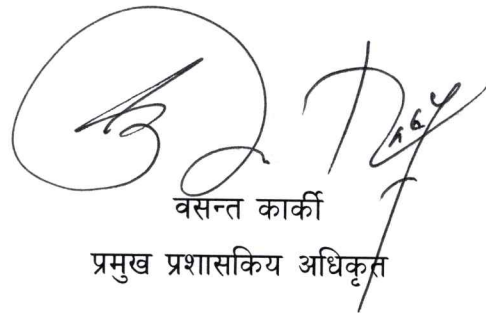 वसन्त कार्की
प्रमुख प्रशासकिय अधिकृत